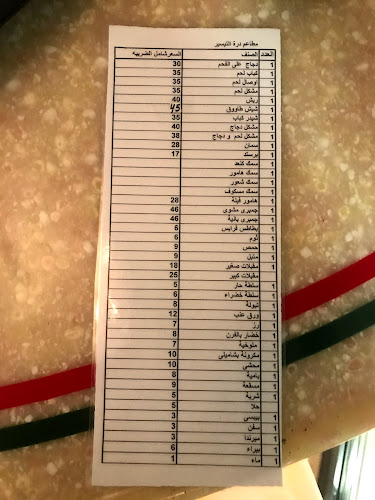 مطاعم درة التيسير
العدد الصنف السعرشامل الضريبه
1 دجاج على الفحم 30
1 كباب لحم 35
1 اوصال لحم 35
1 مشكل لحم 35
1 ريش 40
1 شيش طاووق 45
1 شيدر كباب 35
1 مشكل دجاج 40
1 مشكل لحم و دجاج 38
1 سمان 28
1 برستد 17
1 سمك كنعد
1 سمك هامور
1 سمك شعور
1 سمك مسكوف
1 هامور فيلة 28
1 جمبرى مشوى 46
1 جمبرى بادية 46
1 بطاطس فرايس 6
1 ثوم 6
1 حمص 9
1 متبل 9
1 مقبلات صغير 18
مقبلات كبير 25
1 سلطة حار 5
1 سلطة خضراء 6
1 تبولة 8
1 ورق عنب 12
1 رز 7
1 خضار بالفرن 8
1 ملوخية 7
1 مكرونة بشاميلى 10
1 محشي 10
1 بامية 8
1 مسقعة 9
1 شربة 5
حلا 5
1 بيبسى 3
1 سفن 3
1 ميرندا 3
1 بيراء 6
1 ماء 1